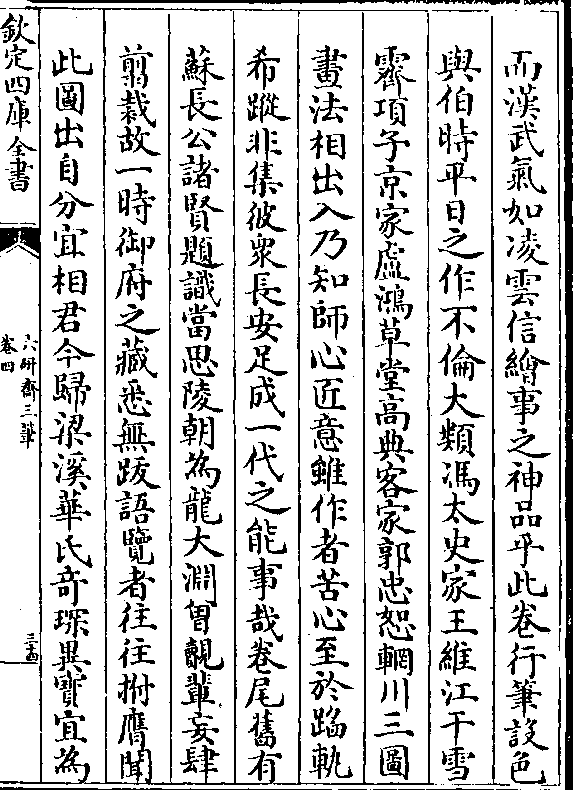 而漢武氣如凌雲信繪事之神品乎此卷行筆設色
與伯時平日之作不倫大類馮太史家王維江干雪
霽項子京家盧鴻草堂高典客家郭忠恕輞川三圖
畫法相出入乃知師心匠意雖作者苦心至於蹈軌
希蹤非集彼衆長安足成一代之能事哉卷尾舊有
蘇長公諸賢題識當思陵朝為龍大淵曾覿輩妄肆
翦裁故一時御府之藏悉無跋語覽者往往拊膺聞
此圖出自分宜相君今歸梁溪華氏竒琛異寳宜為
欽定四庫全書
六研齋三筆
卷四
三十四